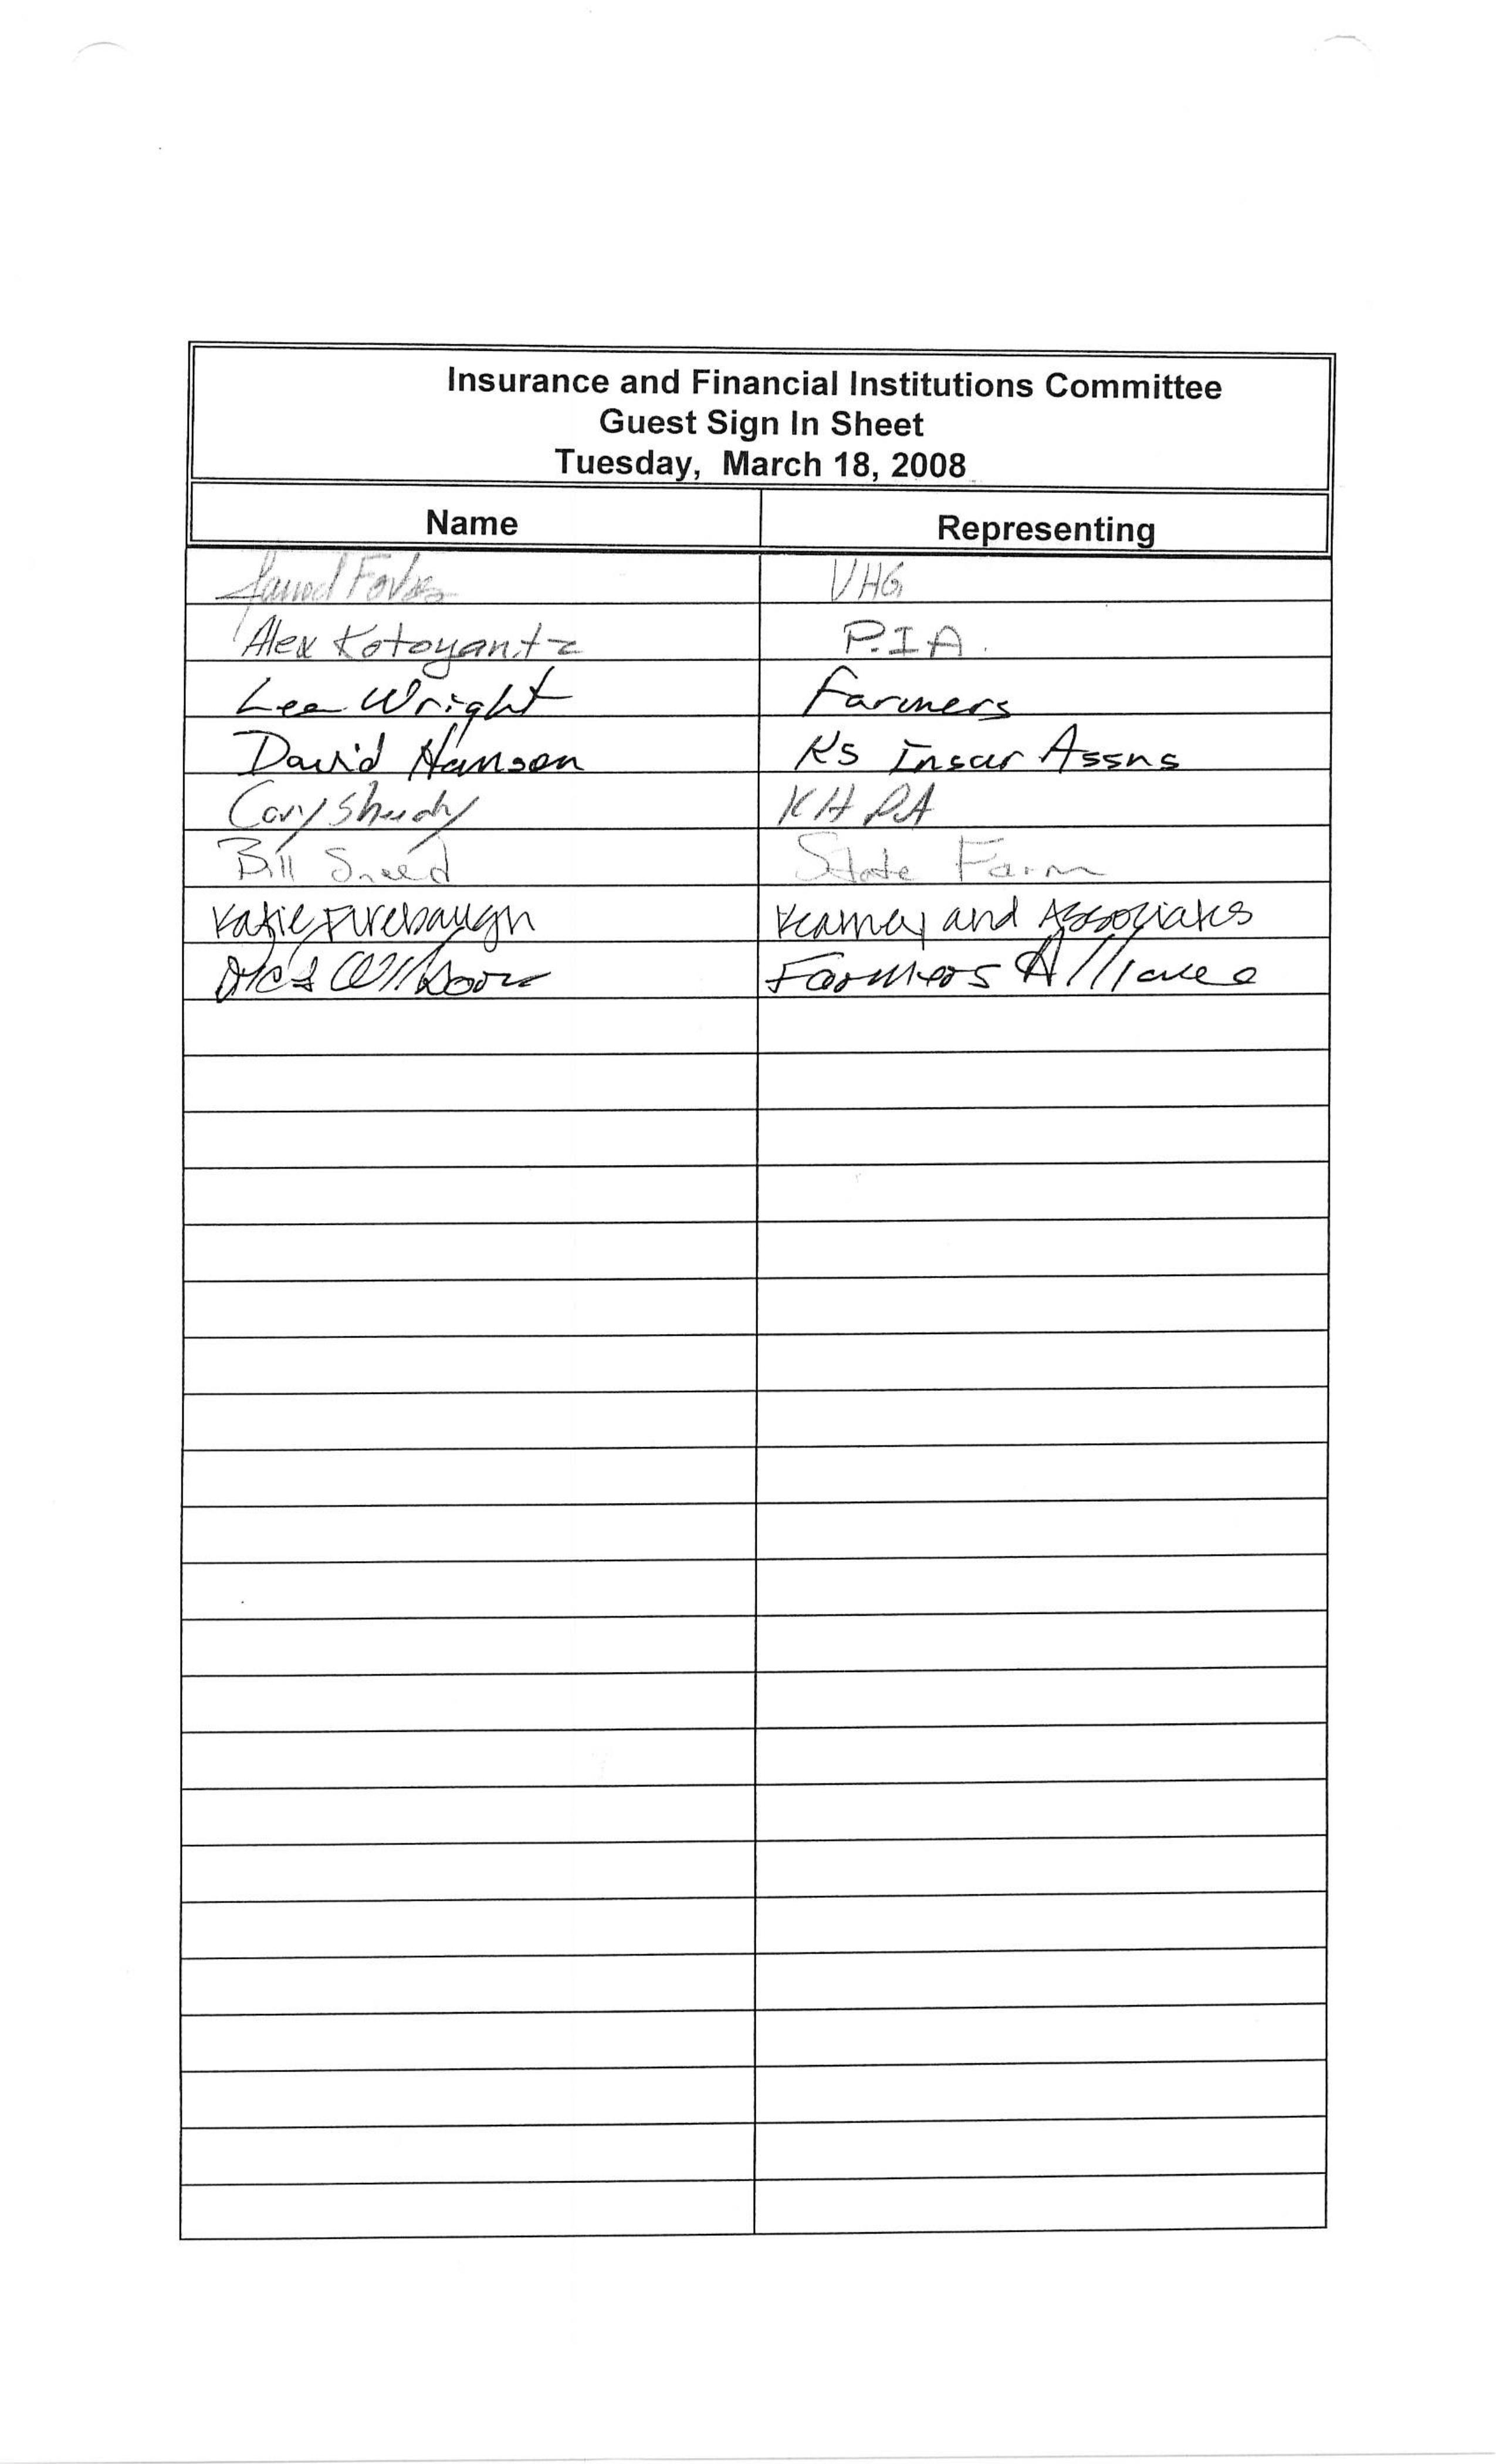 Insurance and Financial Institutions Committee
Guest Sign In Sheet
Tuesday, March 18, 2008
Name Representing
Jarrod Forbes VHG
Alex Kotoyantz P.I.A.
Lee Wright Farmers
David Hanson Ks Insur Assns
Cary Sheedy KHPA
Bill Sneed State Farm
Katie Firebaugh Kearney and Associates
Farmers Alliance